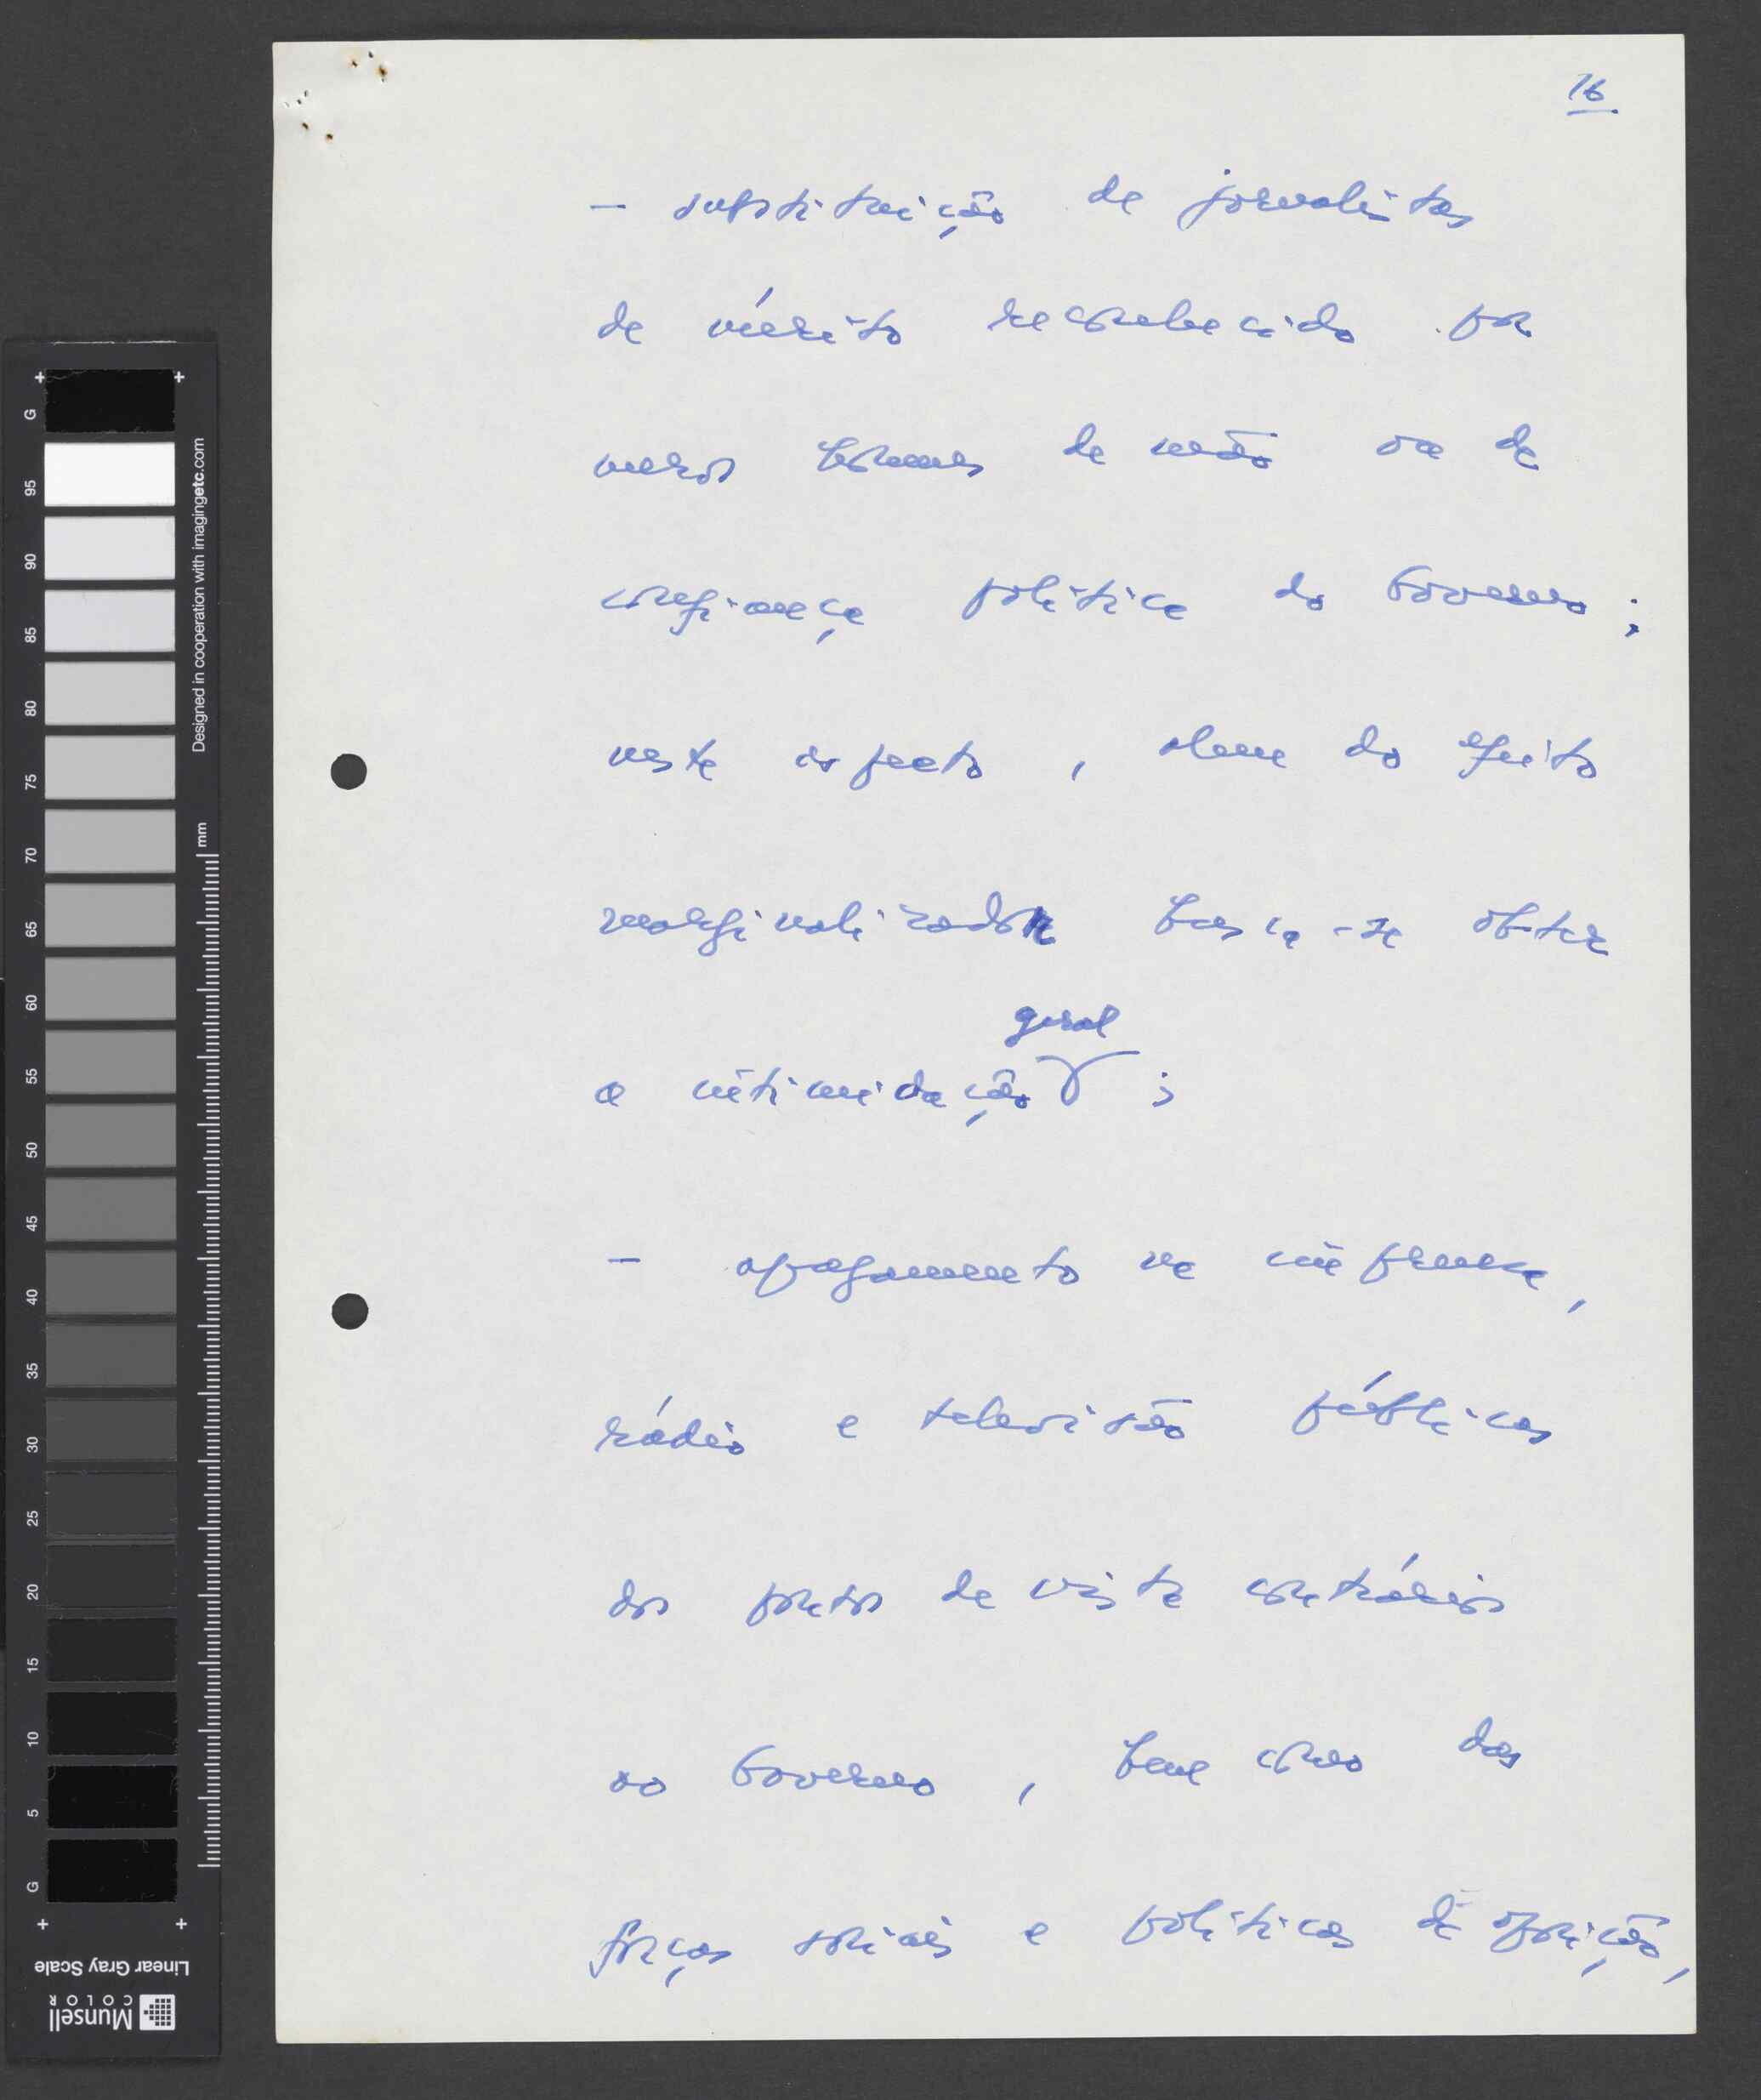 16
- substituição de jornalistas
de mérito reconhecido por
meros homens de mão ou de
confiança política do Governo;
neste aspecto, alem do efeito
marginalizador busca-se obter
geral
a intimidação ;
- apagamento na imprensa,
rádio e televisão públicas
dos pontos de vista contrários
ao Governo, bem como das
forças sociais e políticas de oposição,
G
95
90
85
80
75
70
65
60
55
50
45
40
35
30
25
20
15
10
5
G
Designed in cooperation with imagingetc.com
mm
Linear Gray Scale
Munsell
COLOR